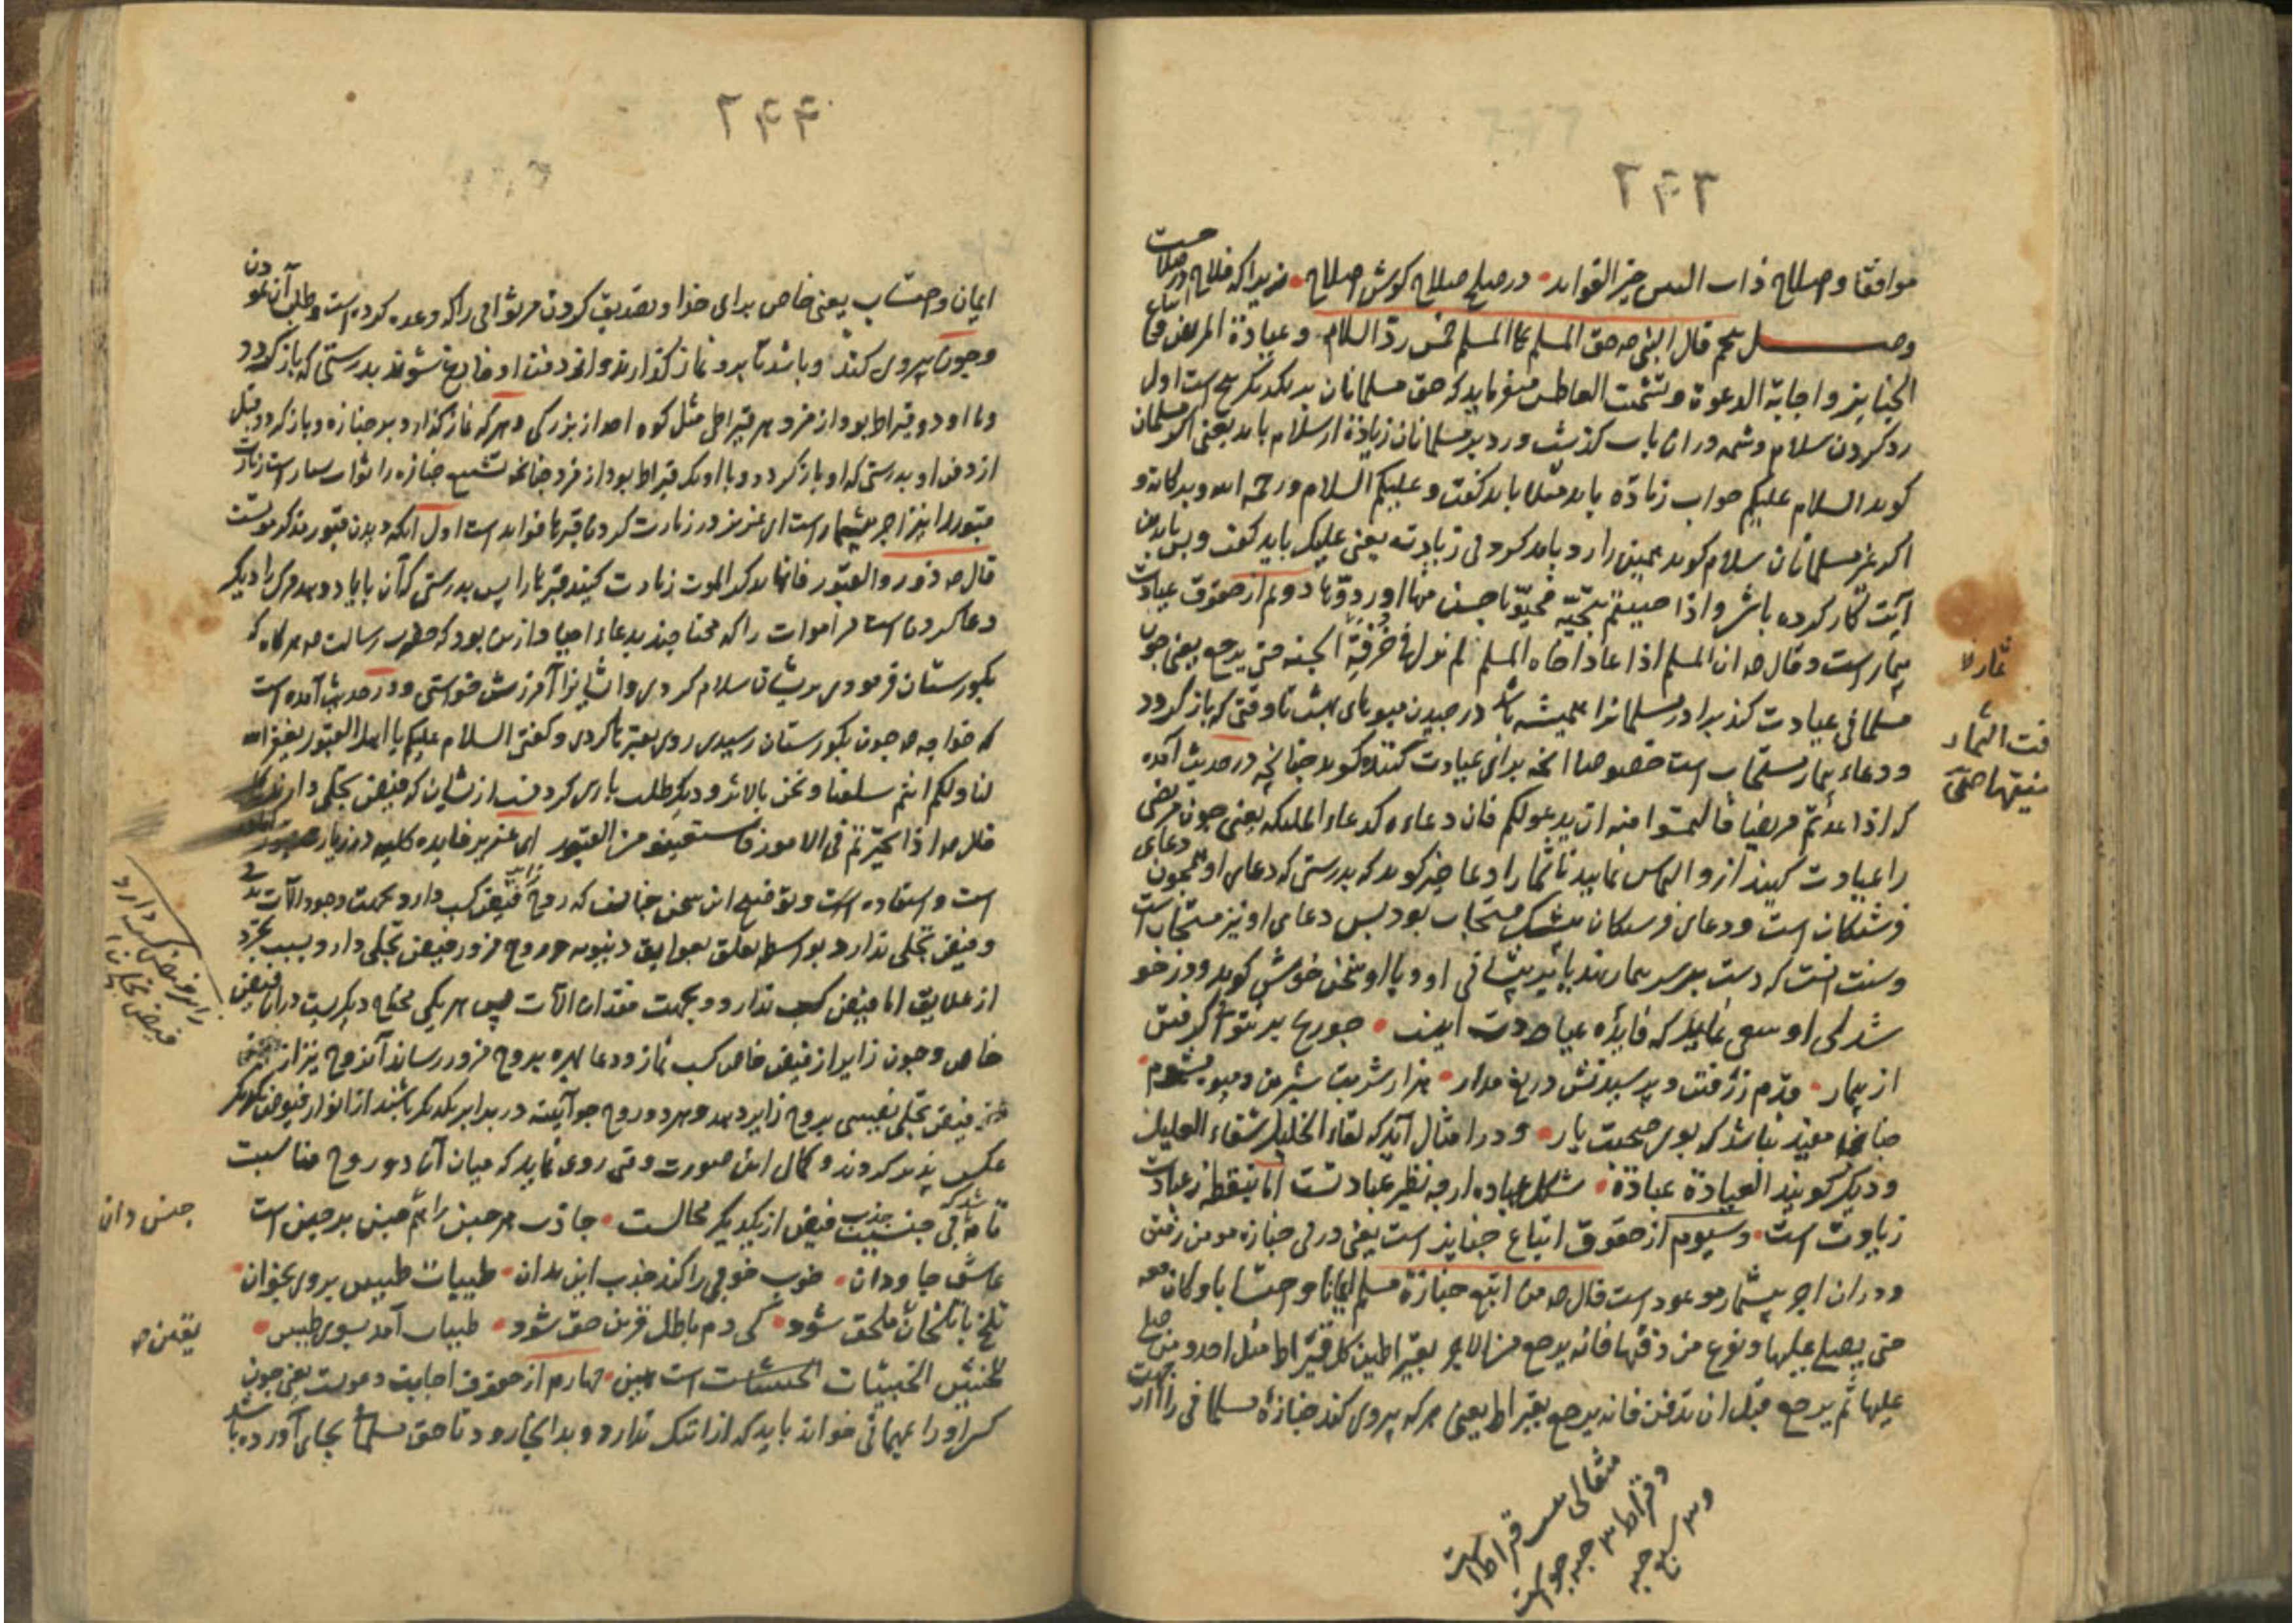 ۲۴۳
موافقا و اصلاح ذات البین خیر الفواید درصلح صلاح کوش اصلاح زیرا که فلاح در صلاحست
وصل پنجم قال النبی صه حق المسلم علی المسلم خمس ردّ السلام و عیادة المریض و اتباع
الجنایز و اجابة الدعوة و تشمت العاطس میفرماید که حق مسلمانان بر یکدیگر پنج است اول
رد کردن سلام و شمه در این باب کذشت و رد بر مسلمانان زیاده از سلام باید یعنی اگر مسلمان
کوید السلام علیکم جواب زیاده باید مثلا باید کفت و علیکم السلام و رحمة الله و برکاته و
اکر غیر مسلمانان سلام کوید همین را رد باید کرد بی زیادت یعنی علیک باید کفت و بس باید بدین
آیت کار کرده باشد و اذا حییتم بتحیّه فحیّوا باحسن منها او ردّوها دوم از حقوق عیادت
بیمار است و قال صه ان المسلم اذا عاد اخاه المسلم لم یزل فی خرفة الجنه حتی یرجع یعنی چون
مسلمانی عیادت کند برادر مسلمانرا همیشه باشد در چیدن میوهای بهشت تا وقتی که باز کردد
و دعاء بیمار مستجاب است خصوصا انچه برای عیادت کننده کوید چنانچه در حدیث آمده
که اذا عدتم مریضا فالتمسوا منه ان یدعو لکم فان دعاءه کدعاء الملیکه یعنی چون مریضی
را عیادت کنید از و التماس نمایید تا شما را دعا خیر کوید که بدرستی که دعای او همچون دعای
فرشتکان است و دعای فرشتکان بیشک مستجاب بود پس دعای او نیز مستجاب است
و سنت انست که دست بر سر بیمار نهد یا بر پیشانی او و با او سخن خوش کوید و در خو
شدلی او سعی نماید که فایدهٔ عیادت اینست
از بیمار قدم رفتن و پرسیدنش دریغ مدار هزار شربت شیرین و میوه مشموم
چنان مفید نباشد که بوی صحبت یار و در امثال آید که لقاء الخلیل شفاء العلیل
و دیکر کویند العیادة عبادة شکل عیاده ار چه نظیر عبادتست اما بنقطه ز عبادت
زیادت است و سیوم از حقوق اتباع جنایز است یعنی در پی جنازه مومن رفتن
و در ان اجر بیشمار موعود است قال صه من اتبع جنازة مسلم ایمانا و احتسابا و کان معه
حتی یصلی علیها و یفرغ من دفنها فانه یرجع من الاجر بقیراطین کل قیراط مثل احد و من صلی
علیها ثم یرجع قبل ان تدفن فانه یرجع بقیراط یعنی هر که پیروی کند جنازهٔ مسلمانی را از جهت
قیراط است
و قیراط ۳ حبه جو است
حبه
۲۴۴
ایمان و احتساب یعنی خاص برای خدا و تصدیق کردن مر ثوابی را که وعده کرده است و طلب آن نمودن
و چون پیروی کند و باشد تا برو نماز کذارند و از دفن او فارغ شوند بدرستی که باز کردد
و با او دو قیراط بود از مزد هر قیراطی مثل کوه احد از بزرکی و هر که نماز کذارد بر جنازه و باز کردد قبل
از دفن او بدرستی که او باز کردد و با او یک قیراط بود از مزد چنانچه تشییع جنازه را ثواب بسیار است زیارت
قبور را نیز اجر بیشمار است ای عزیز در زیارت کردن قبرها فواید است اول انکه دیدن قبور مذکر موتست
قال صه زوروا القبور فانها یذکر الموت زیارت کنید قبرها را پس بدرستی که آن بایاد دهد مرک را دیکر
دعا کردن است مر اموات را که محتاجند بدعاء احیا و ازین بود که حضرت رسالت صه هر کاه که
بکورستان فرمودی بریشان سلام کردی و ایشانرا آمرزش خواستی و در حدیث آمده است
که خواجه صه چون بکورستان رسیدی روی بقبرها کردی و کفتی السلام علیکم یا اهل القبور یغفر الله
لنا ولکم انتم سلفنا و نحن بالاثر و دیکر طلب یاری کردنست از نشان که فیض تجلی دارند
قال صه اذا تحیّرتم فی الامور فاستعینوا من القبور ای عزیز فایده کلیه در زیارت قبور
است و استفاده است و توضیح این سخن چنانست که روح زایر فیض کسب دارد بجهت وجود الآت بدنی
و فیض تجلی ندارد بواسطه تعلق بعوایق دنیویه و روح مزور فیض تجلی دارد بسبب تجرد
از علایق اما فیض کسب ندارد بجهت فقدان الآت پس هر یکی محتاج دیکریست در ان فیض
خاص و چون زایر از فیض خاص کسب نماز و دعا بهره بروح مزور رساند آنروح نیز از
فیض تجلی نصیبی بروح زایر دهد و هر دو روح چو آیینه در برابر یکدیکر باشند از انوار فیوض یکدیکر
عکس پذیر کردند و کمال این صورت وقتی روی نماید که میان آن دو روح مناسبت
تامه باشد که بی جنسیت جذب فیض از یکدیکر محالست جاذب هر جنس را هم جنس بر جنس است
عاشق جاودان خوب خوبی را کند جذب این بدان طیبات طیبین بر وی بخوان
تلخ با تلخان ملحق شود کی دم باطل قرین حق شود طیبات آمد بسوی طیبین
للخبیثین الخبیثات است همین چهارم از حقوق اجابت دعوتست یعنی چون
کسی او را بمهمانی خواند باید که از ان ننک ندارد و بدانجا رود تا حق مسلمانی بجای آورده باشد
زایر فیض کسب دارد
فیض تجلی ندارد
جنس دان
یقین صه